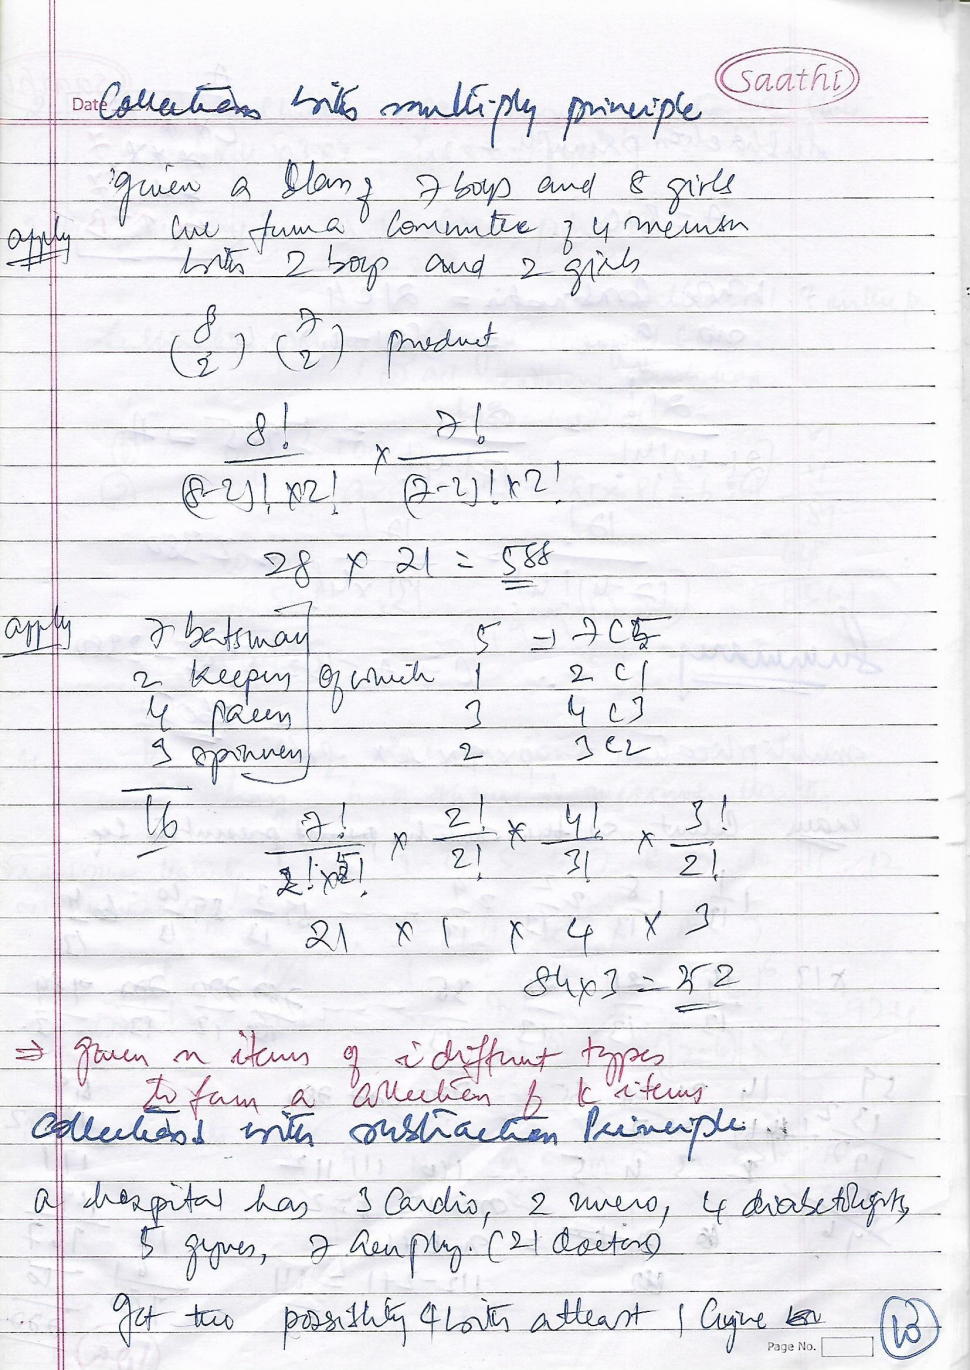 Saathi
Date
Collections with multiply principle
given a class of 7 boys and 8 girls
apply we form a committee of 4 member
with 2 boys and 2 girls
(8 2) (7 2) product
8! / (8-2)! x2! x 7! / (7-2)! x2!
28 x 21 = 588
apply 7 batsman 5 => 7C5
2 keepers of which 1 2C1
4 pacers 3 4C3
3 spinners 2 3C2
16
7! / 2! x 5! x 2! / 2! x 4! / 3! x 3! / 2!
21 x 1 x 4 x 3
84x3 = 252
=> given n items of i different types
to form a collection of k items
Collections with substraction Principle
a hospital has 3 Cardio, 2 , 4 diabetologists,
5 gynes, 7 (21 doctors)
get two possibility 4 with atleast 1 Gyne
Page No. 13